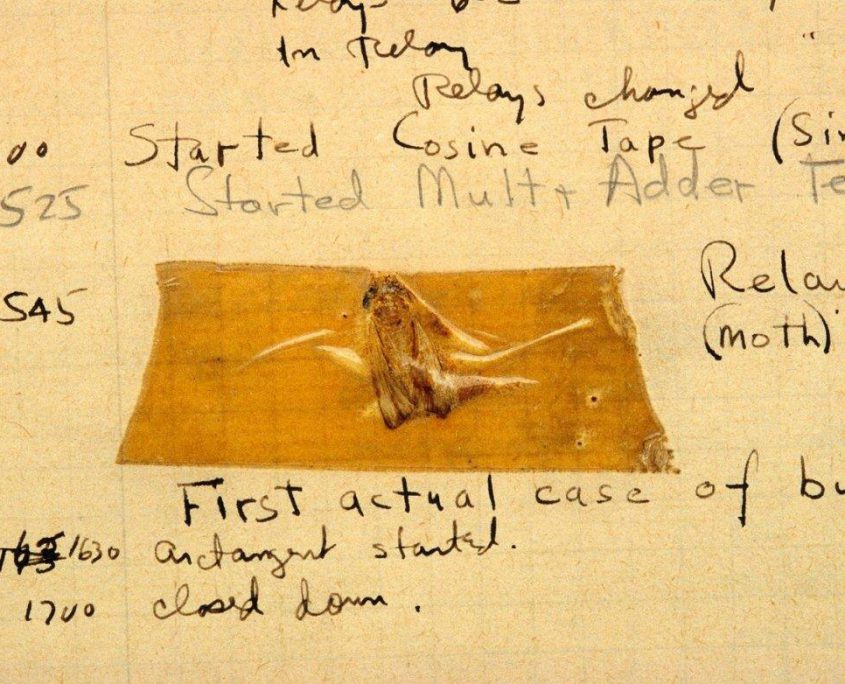 Relays
In Relay "
Relays changed
00 Started Cosine Tape (Sin
525 Started Mult+ Adder Te
545 Relay
(moth)
First actual case of bu
1630 arctangent started.
1700 closed down.